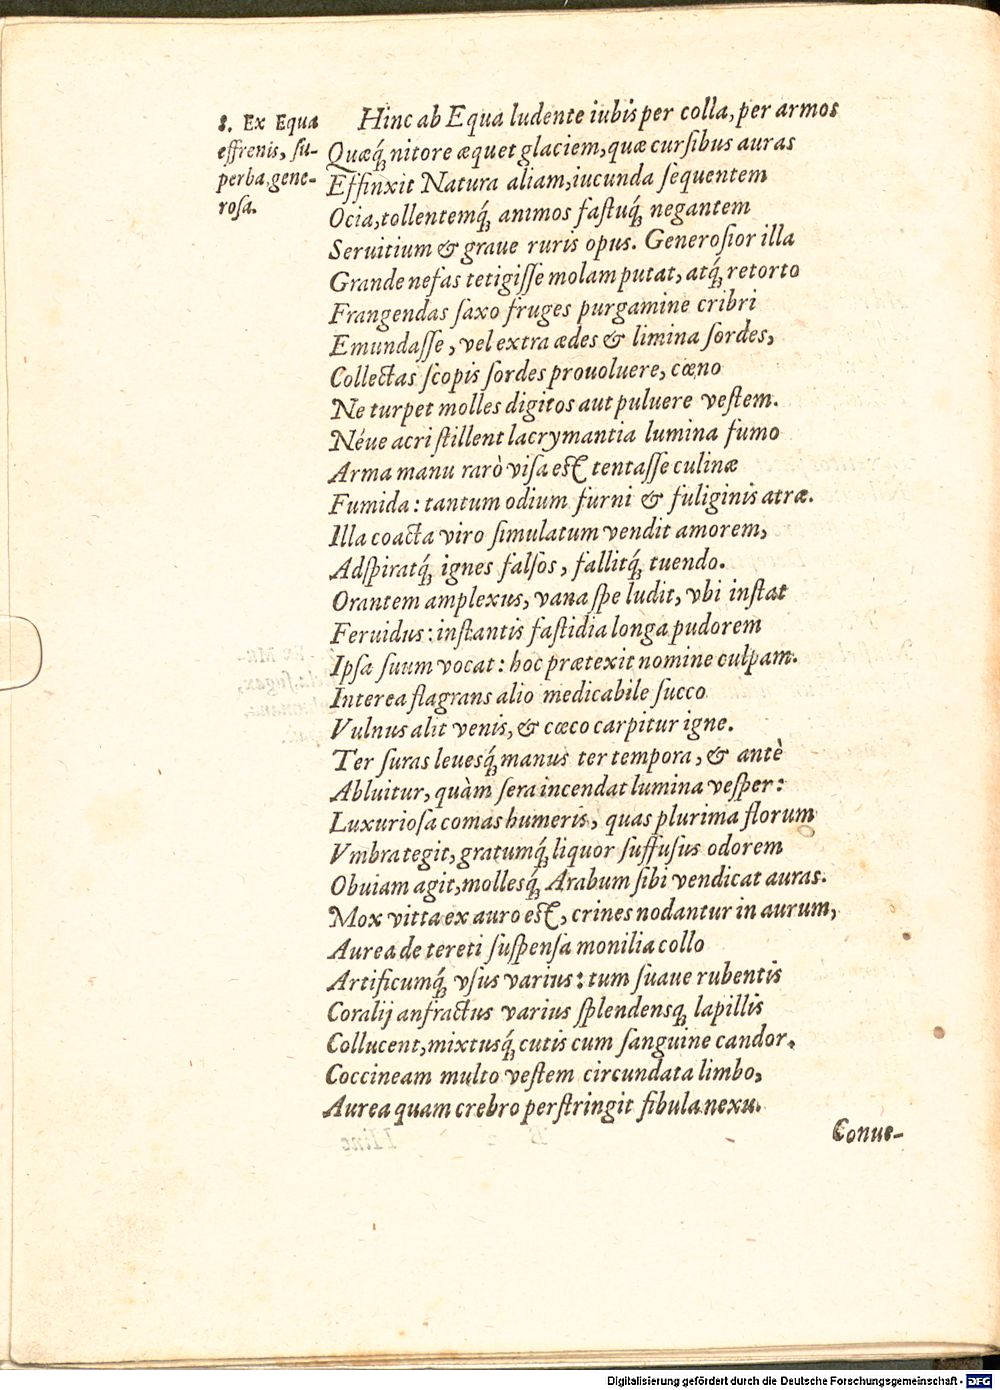 8. Ex Equa
effrenis, ſu-
perba, gene-
roſa.
Hinc ab Equa ludente iubis per colla, per armos
Quæq́ꝫ nitore æquet glaciem, quæ curſibus auras
Effinxit Natura aliam, iucunda ſequentem
Ocia, tollentemq́ꝫ animos faſtuq́ꝫ negantem
Seruitium & graue ruris opus. Generoſior illa
Grande nefas tetigiſſe molam putat, atq́ꝫ retorto
Frangendas ſaxo fruges purgamine cribri
Emundaſſe, vel extra ædes & limina ſordes,
Collectas ſcopis ſordes prouoluere, cœno
Ne turpet molles digitos aut puluere veſtem.
Néue acri ſtillent lacrymantia lumina fumo
Arma manu rarò viſa eſt tentaſſe culinæ
Fumida: tantum odium furni & fuliginis atræ.
Illa coacta viro ſimulatum vendit amorem,
Adſpiratq́ꝫ ignes falſos, fallitq́ꝫ tuendo.
Orantem amplexus, vana ſpe ludit, vbi inſtat
Feruidus: inſtantis faſtidia longa pudorem
Ipſa ſuum vocat: hoc prætexit nomine culpam.
Interea flagrans alio medicabile ſucco
Vulnus alit venis, & cæco carpitur igne.
Ter ſuras leuesq́ꝫ manus ter tempora, & antè
Abluitur, quàm ſera incendat lumina veſper:
Luxurioſa comas humeris, quas plurima florum
Vmbra tegit, gratumq́ꝫ liquor ſuffuſus odorem
Obuiam agit, mollesq́ꝫ Arabum ſibi vendicat auras.
Mox vitta ex auro eſt, crines nodantur in aurum,
Aurea de tereti ſuſpenſa monilia collo
Artificumq́ꝫ vſus varius: tum ſuaue rubentis
Coralij anfractus varius ſplendensqꝫ lapillis
Collucent, mixtusq́ꝫ cutis cum ſanguine candor.
Coccineam multo veſtem circundata limbo,
Aurea quam crebro perſtringit fibula nexu.
Conue-
Digitalisierung gefördert durch die Deutsche Forschungsgemeinschaft - DFG